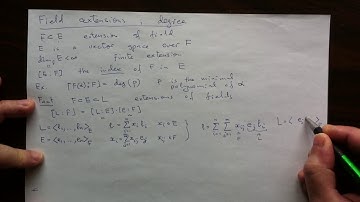 Field extensions, degree
F ⊂ E extension of field
E is a vector space over F
dim_F E < ∞ finite extension
[E:F] the index of F in E
Ex. [F(α):F] = deg(p) p is the minimal
polynomial of α
Fact F ⊂ E ⊂ L extensions of fields,
[L:F] = [L:E]·[E:F]
L = ⟨l₁, …, lₘ⟩_E l = Σ xᵢ lᵢ xᵢ ∈ E
E = ⟨e₁, …, eₙ⟩_F xᵢ = Σ xᵢⱼ eⱼ xᵢⱼ ∈ F
l = Σ Σ xᵢⱼ eⱼ lᵢ L = ⟨ eⱼ